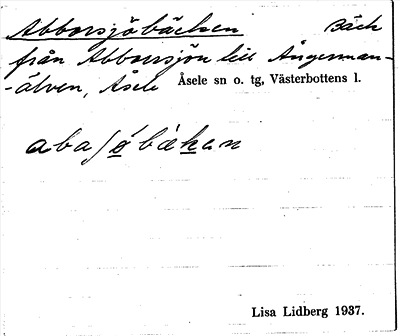 Abborrsjöbäcken Bäck
från Abborrsjön till Ångerman-
-älven, Åsele Åsele sn o. tg, Västerbottens l.
abaʃø̀bä̀kan
Lisa Lidberg 1937.